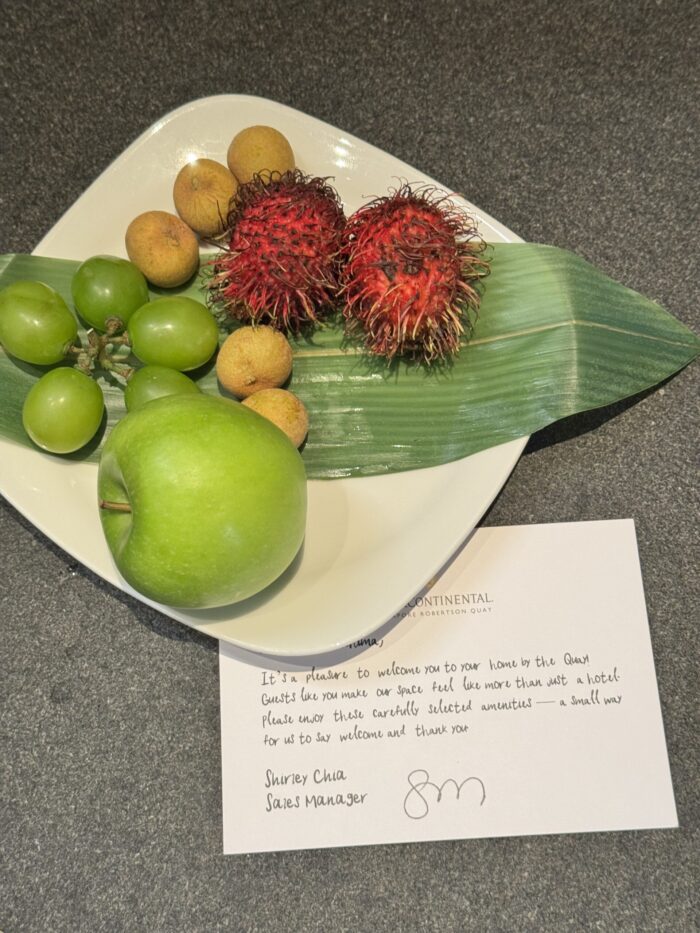 CONTINENTAL.
ROBERTSON QUAY
It's a pleasure to welcome you to your home by the Quay!
Guests like you make our space feel like more than just a hotel.
please enjoy these carefully selected amenities — a small way
for us to say welcome and thank you
Shirley Chia
Sales Manager